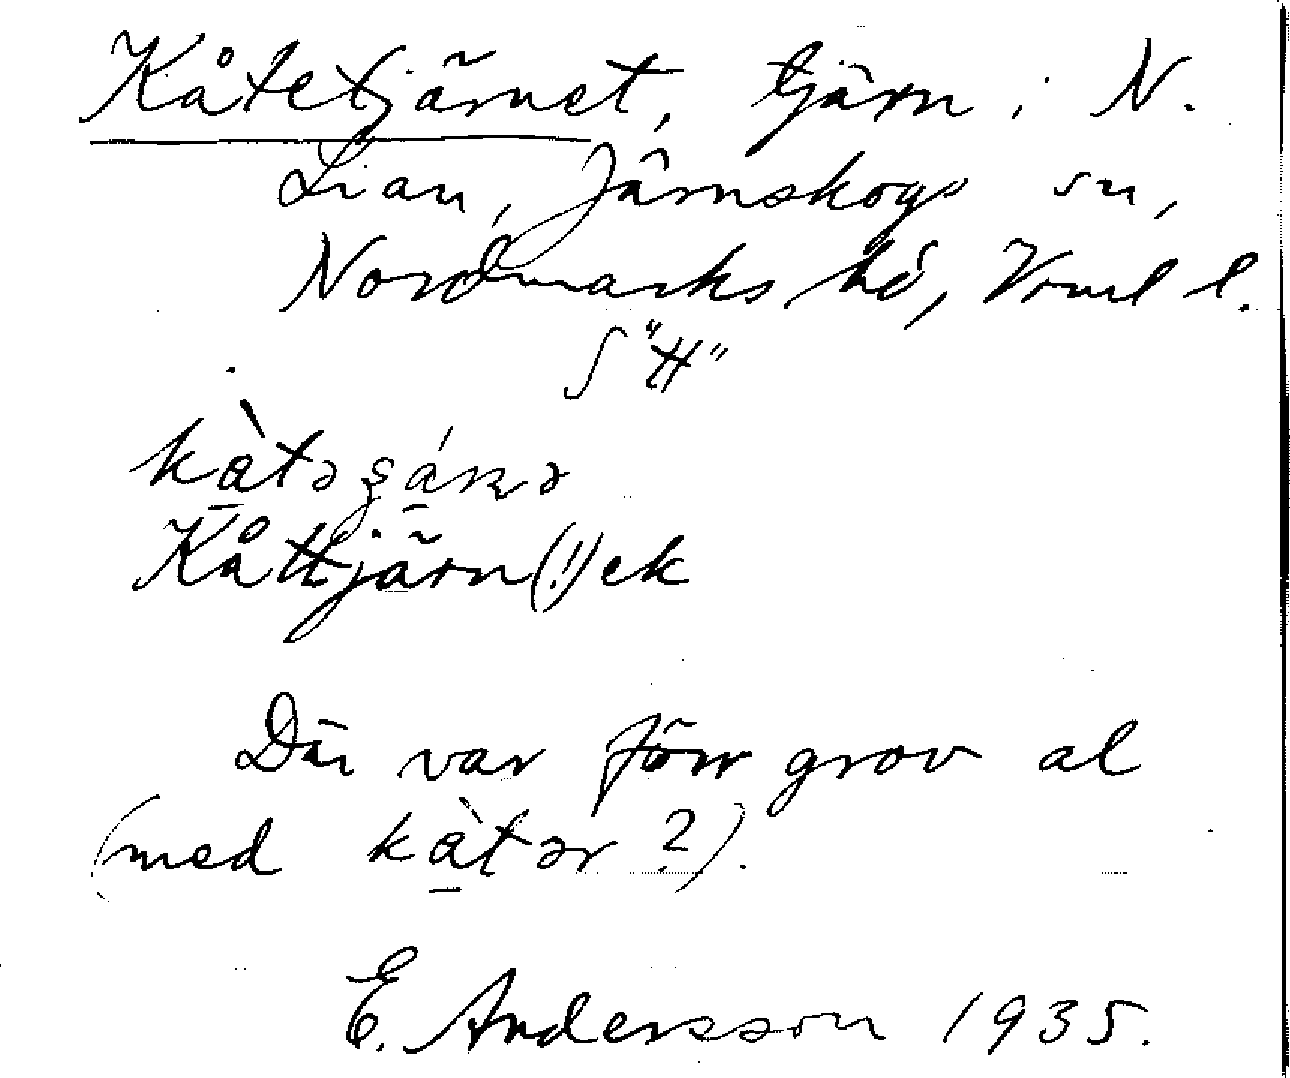 Kåtetjärnet, tjärn i N.
Lian, Järnskogs sn,
Nordmarks hd, Vrml l.
"H"
Kåttjärn(!) ek
Där var förr grov al
(med kàtər ?).
E. Andersson 1935.